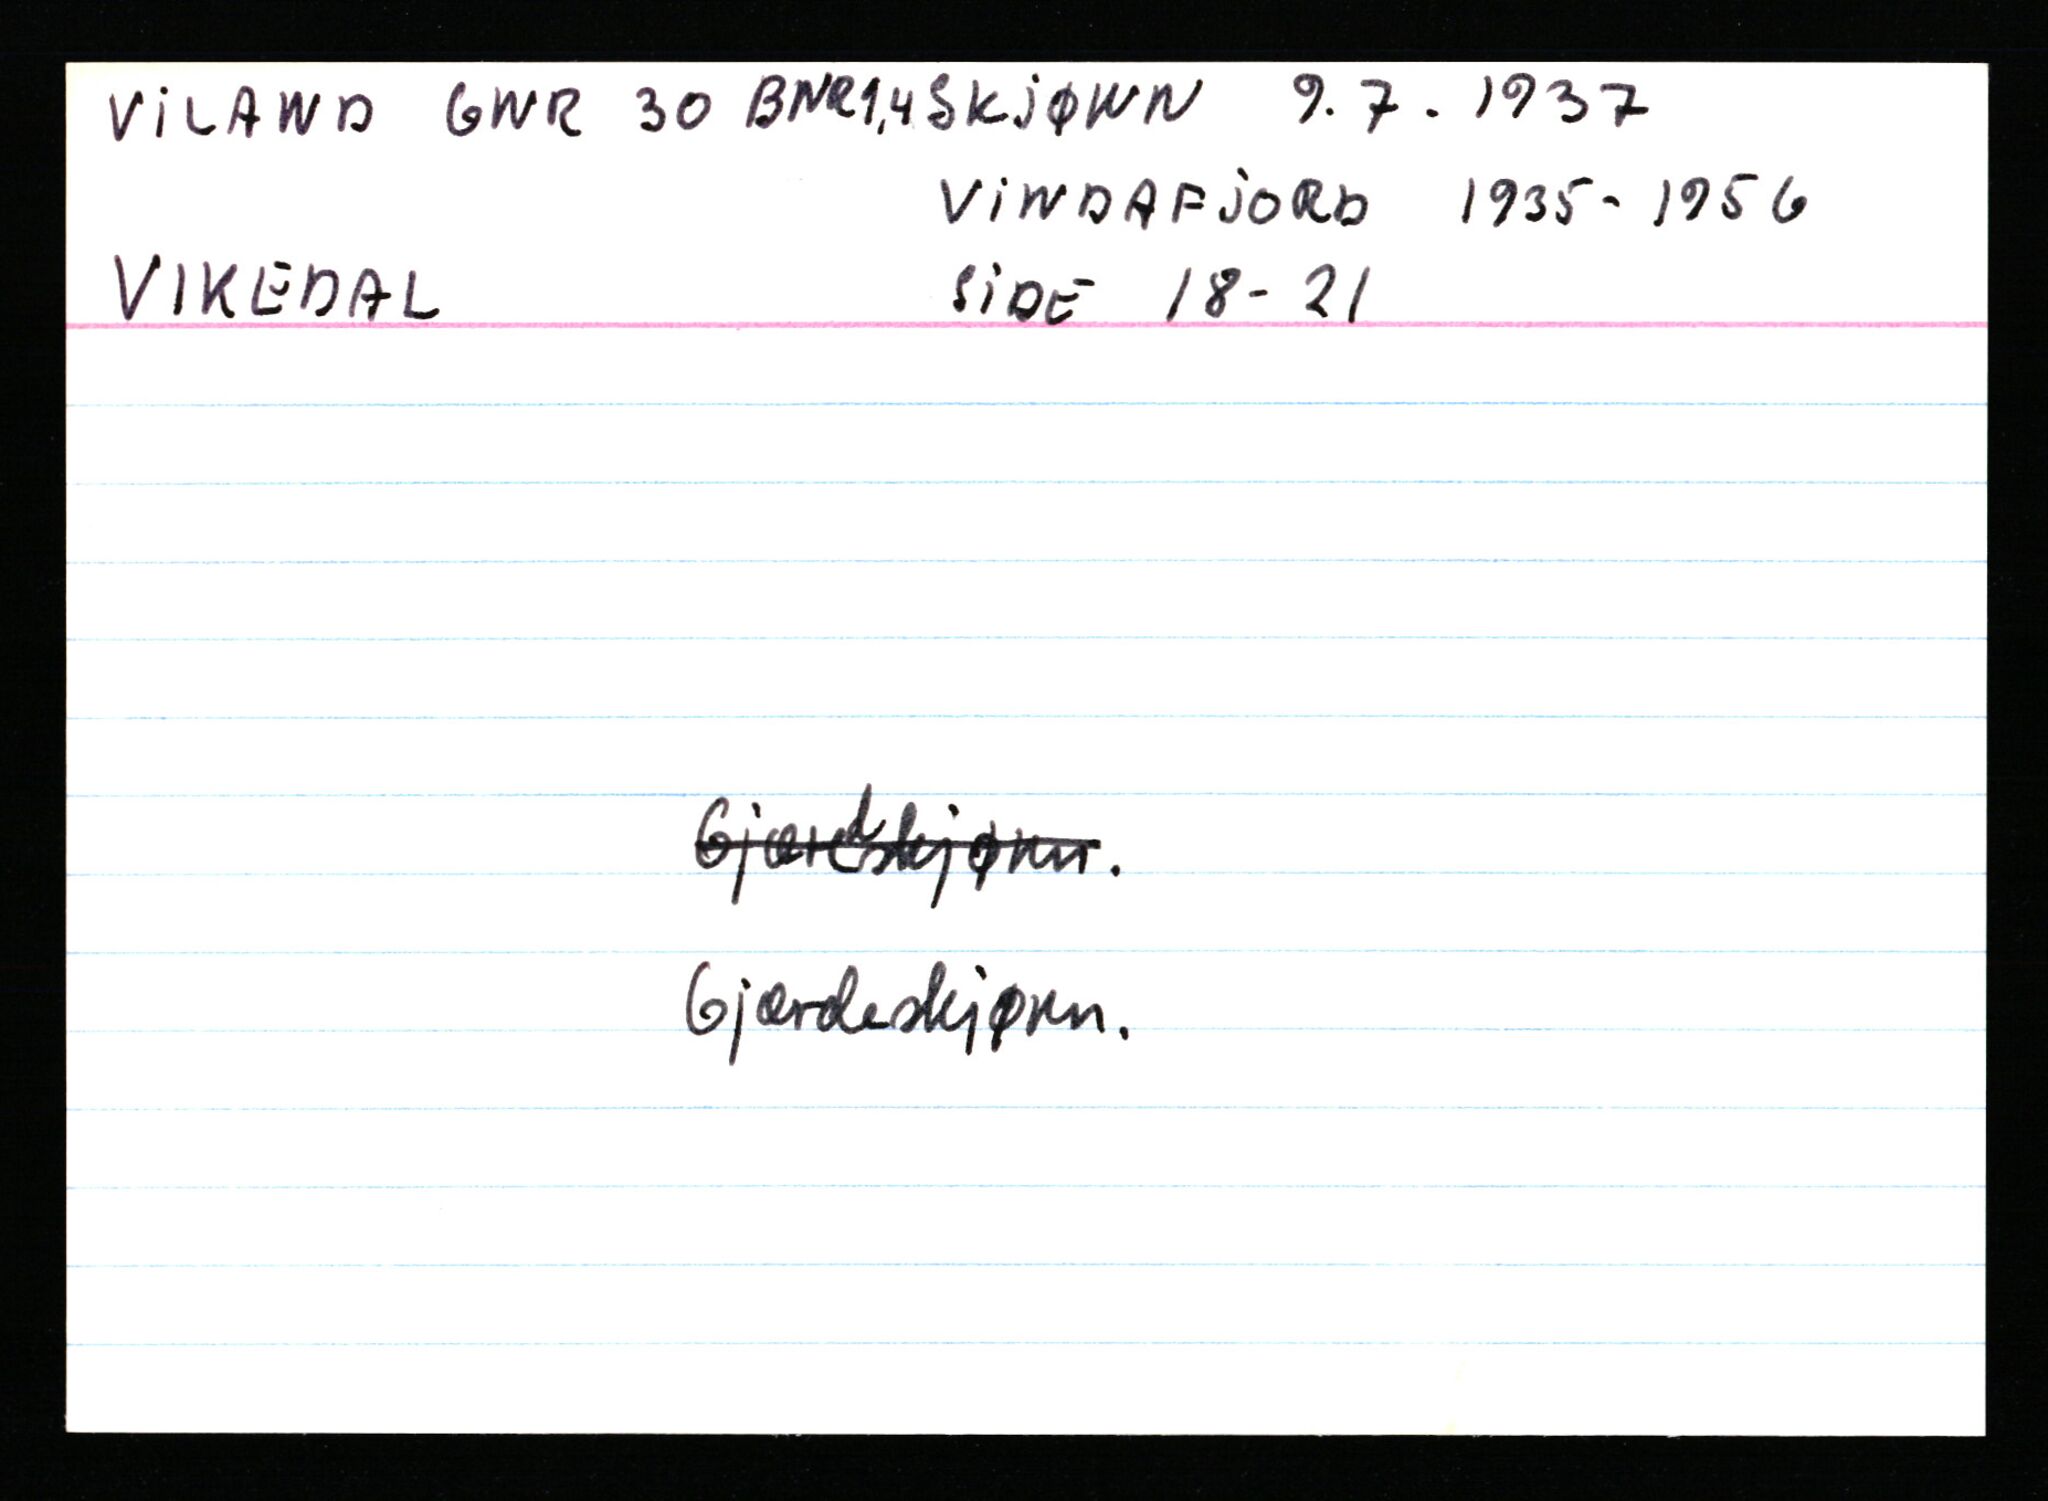 VILAND GNR 30 BNR 1,4 SKJØNN 9.7.1937
VINDAFJORD 1935-1956
VIKEDAL SIDE 18-21
Gjærdskjønn.
Gjærdeskjønn.